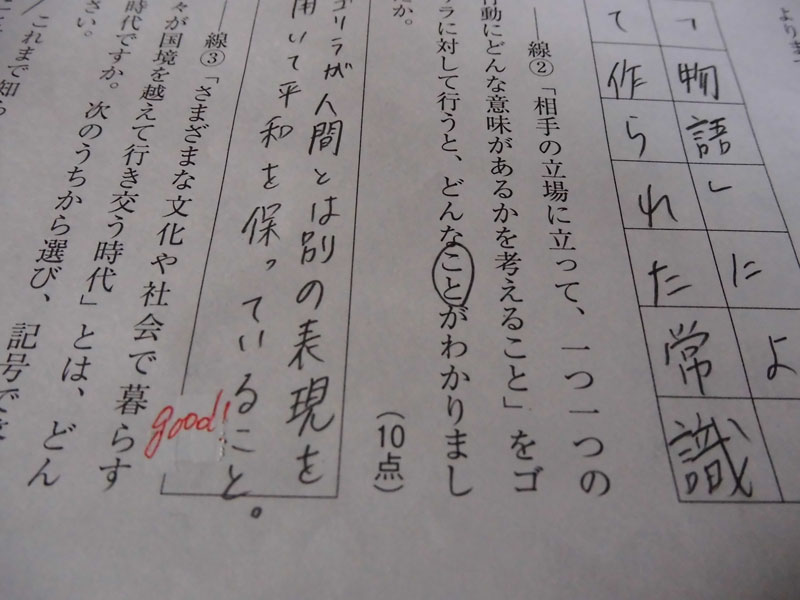 より
「物語」によ
て作られた常識
――線②「相手の立場に立って、一つ一つの
行動にどんな意味があるかを考えること」をゴ
ラに対して行うと、どんなことがわかりまし
たか。
(10点)
ゴリラが人間とは別の表現を
用いて平和を保っていること。
good!
――線③「さまざまな文化や社会で暮らす
々が国境を越えて行き交う時代」とは、どん
時代ですか。次のうちから選び、記号で
さい。
これまで知ら